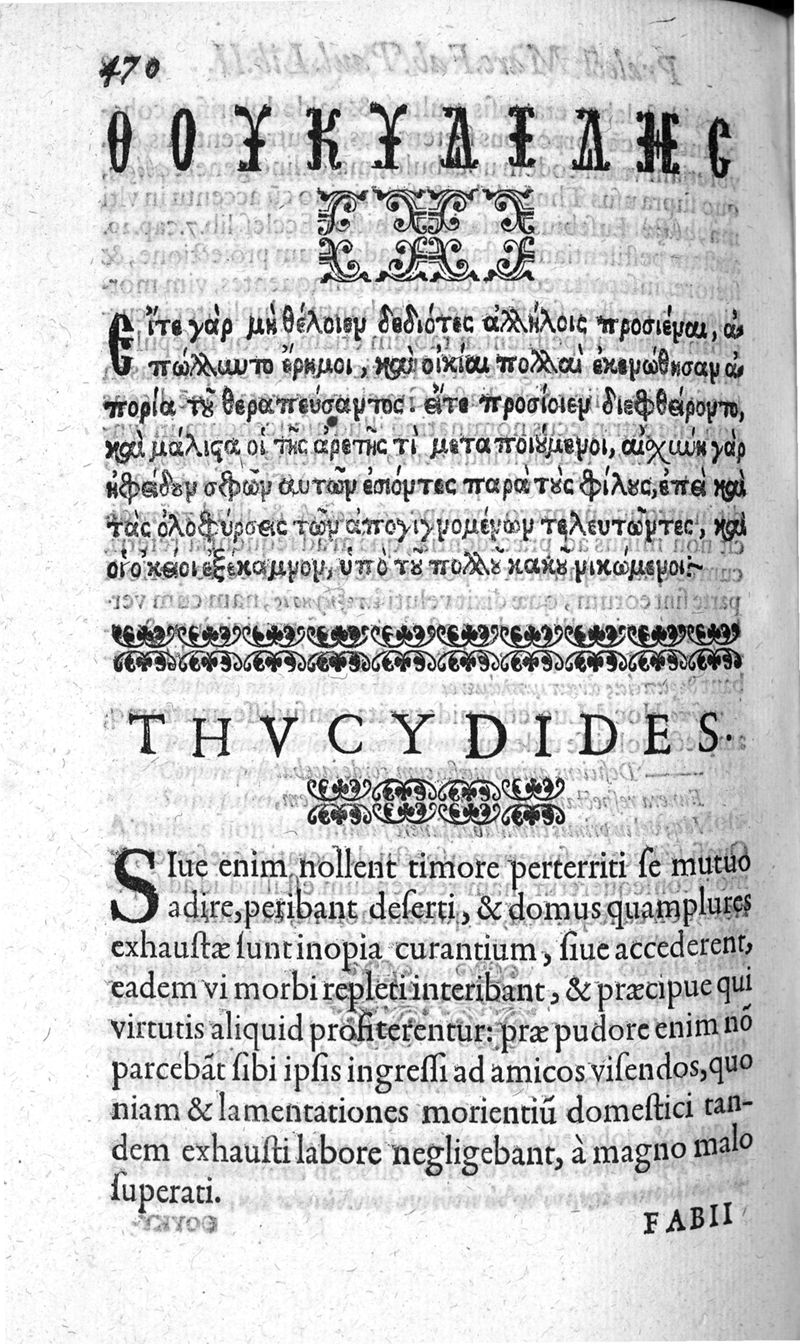 470
ΘΟΥΚΥΔΙΔΗς
Εἴτε γὰρ μὴ θέλοιεν δεδιότες ἀλλήλοις προσιέναι, ἀ-
πώλλυντο ἔρημοι, καὶ οἰκίαι πολλαὶ ἐκενώθησαν ἀ-
πορία τοῦ θεραπεύσαντος: εἴτε προσίοιεν διεφθείροντο,
καὶ μάλιςα οἱ τῆς ἀρετῆς τὶ μεταποιούμενοι, αἰσχύνη γὰρ
ἠφείδουν σφῶν αυτῶν ἐσιόντες παρὰ τοὺς φίλους, ἐπεὶ καὶ
τὰς ὀλοφύρσεις τῶν ἀπογιγνομένων τελευτῶντες, καὶ
οἱ οἰκεῖοι ἐξέκαμνον, ὑπὸ τοῦ πολλοῦ κακοῦ νικώμενοι:~
THVCYDIDES.
SIue enim nollent timore perterriti ſe mutuo
adire, peribant deſerti, & domus quamplures
exhauſtæ ſunt inopia curantium, ſiue accederent,
eadem vi morbi repleti interibant, & præcipue qui
virtutis aliquid profiterentur: præ pudore enim nō
parcebāt ſibi ipſis ingreſſi ad amicos viſendos, quo
niam & lamentationes morientiū domeſtici tan-
dem exhauſti labore negligebant, à magno malo
ſuperati.
FABII